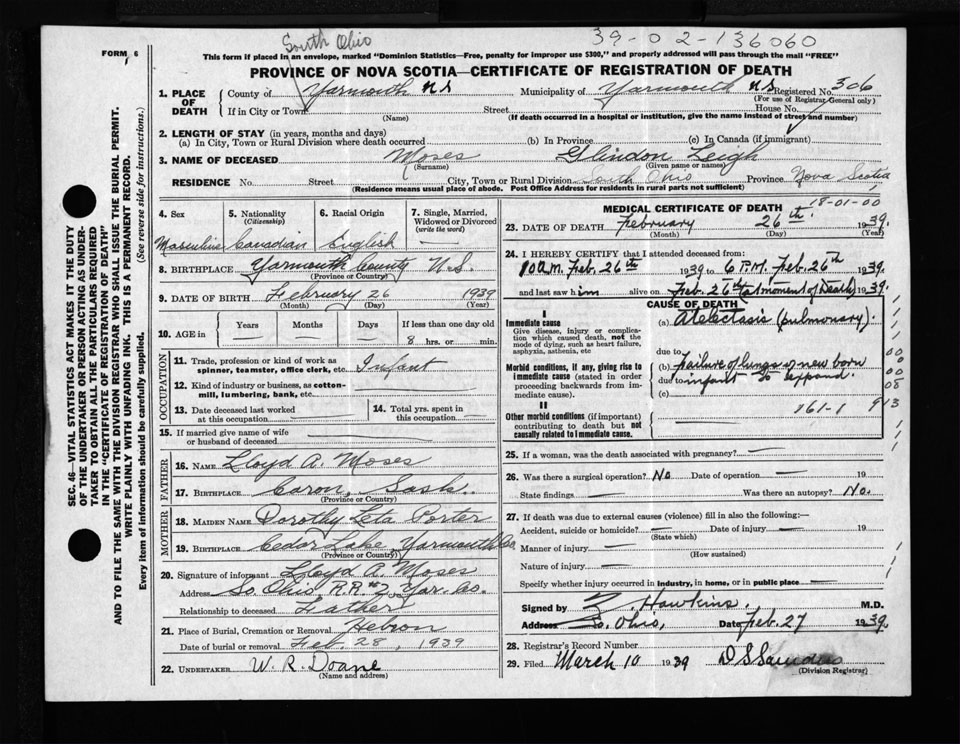 South Ohio
39-02-136060
FORM 6
This form if placed in an envelope, marked "Dominion Statistics—Free, penalty for improper use $300," and properly addressed will pass through the mail "FREE"
PROVINCE OF NOVA SCOTIA—CERTIFICATE OF REGISTRATION OF DEATH
SEC. 46—VITAL STATISTICS ACT MAKES IT THE DUTY
OF THE UNDERTAKER OR PERSON ACTING AS UNDER-
TAKER TO OBTAIN ALL THE PARTICULARS REQUIRED
IN THE "CERTIFICATE OF REGISTRATION OF DEATH"
AND TO FILE THE SAME WITH THE DIVISION REGISTRAR WHO SHALL ISSUE THE BURIAL PERMIT.
WRITE PLAINLY WITH UNFADING INK. THIS IS A PERMANENT RECORD.
Every item of information should be carefully supplied. (See reverse side for instructions.)
1. PLACE OF DEATH
County of Yarmouth NS Municipality of Yarmouth NS Registered No. 306
(For use of Registrar General only)
If in City or Town Street House No.
(Name) (If death occurred in a hospital or institution, give the name instead of street and number)
2. LENGTH OF STAY (in years, months and days)
(a) In City, Town or Rural Division where death occurred (b) In Province (c) In Canada (if immigrant)
3. NAME OF DECEASED Moses Glindon Leigh
(Surname) (Given name or names)
RESIDENCE No. Street City, Town or Rural Division South Ohio Province Nova Scotia
(Residence means usual place of abode. Post Office Address for residents in rural parts not sufficient)
4. Sex 5. Nationality (Citizenship) 6. Racial Origin 7. Single, Married, Widowed or Divorced (write the word)
Masculine Canadian English —
8. BIRTHPLACE Yarmouth County N.S.
(Province or Country)
9. DATE OF BIRTH February 26 1939
(Month) (Day) (Year)
10. AGE in Years Months Days If less than one day
8 hrs. or min.
OCCUPATION
11. Trade, profession or kind of work as
spinner, teamster, office clerk, etc. Infant
12. Kind of industry or business, as cotton-
mill, lumbering, bank, etc.
13. Date deceased last worked
at this occupation
14. Total yrs. spent in
this occupation
15. If married give name of wife
or husband of deceased
FATHER
16. NAME Lloyd A. Moses
17. BIRTHPLACE Caron, Sask.
(Province or Country)
MOTHER
18. MAIDEN NAME Dorothy Leta Porter
19. BIRTHPLACE Cedar Lake, Yarmouth Co.
(Province or Country)
20. Signature of informant Lloyd A. Moses
Address So. Ohio, R.R. #2, Yar. Co.
Relationship to deceased Father
21. Place of Burial, Cremation or Removal Hebron
Date of burial or removal Feb. 28, 1939
22. UNDERTAKER W. R. Doane
(Name and address)
MEDICAL CERTIFICATE OF DEATH 18-01-00
23. DATE OF DEATH February 26th 1939.
(Month) (Day) (Year)
24. I HEREBY CERTIFY that I attended deceased from:
10 a.m. Feb. 26th 1939 to 6 P.M. Feb. 26th 1939.
and last saw him alive on Feb. 26th (at moment of Death) 1939.
CAUSE OF DEATH
I
Immediate cause
Give disease, injury or complica-
tion which caused death, not the
mode of dying, such as heart failure,
asphyxia, asthenia, etc
(a) Atelectasis (pulmonary).
due to
Morbid conditions, if any, giving rise to
immediate cause (stated in order
proceeding backwards from im-
mediate cause).
(b) Failure of lungs of new born
due to infant to expand.
(c)
II
Other morbid conditions (if important)
contributing to death but not
causally related to immediate cause.
161-1 913
00
00
00
08
25. If a woman, was the death associated with pregnancy? —
26. Was there a surgical operation? No Date of operation — 19
State findings — Was there an autopsy? No.
27. If death was due to external causes (violence) fill in also the following:
Accident, suicide or homicide? — Date of injury — 19
(State which)
Manner of injury —
(How sustained)
Nature of injury —
Specify whether injury occurred in industry, in home, or in public place —
Signed by Z. Hawkins. M.D.
Address So. Ohio, Date Feb. 27 1939.
28. Registrar's Record Number
29. Filed March 10 1939 D S Saunders
(Division Registrar)